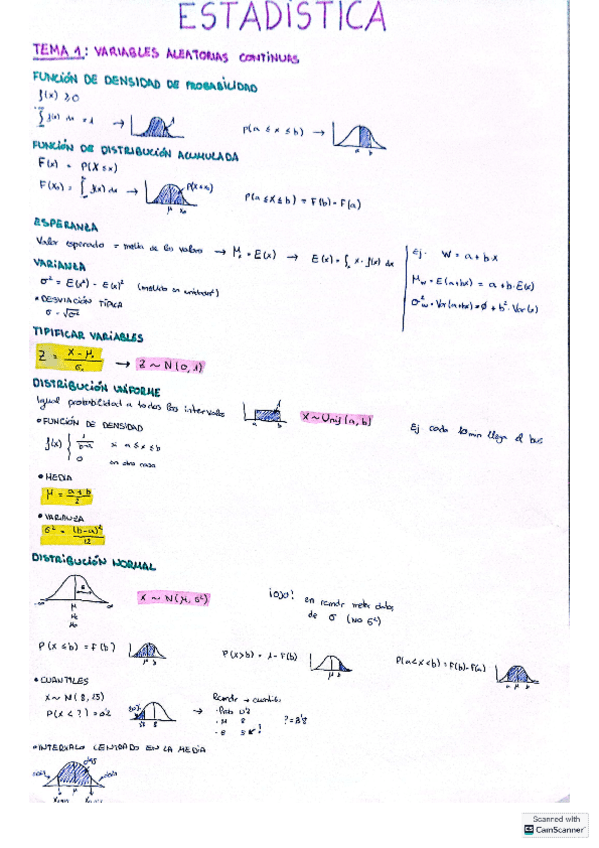 ESTADÍSTICA
TEMA 1: VARIABLES ALEATORIAS CONTINUAS
FUNCIÓN DE DENSIDAD DE PROBABILIDAD
f(x) ≥ 0
∫ f(x) dx = 1 →
P(a ≤ x ≤ b) →
a b
FUNCIÓN DE DISTRIBUCIÓN ACUMULADA
F(x) = P(X ≤ x)
F(x₀) = ∫ f(x) dx → P(X≤x₀)
μ x₀
P(a ≤ X ≤ b) = F(b) - F(a)
ESPERANZA
Valor esperado = media de los valores → μₓ = E(x) → E(x) = ∫ₓ x · f(x) dx
Ej. W = a + b·X
μw = E(a+bx) = a + b·E(x)
σ²w = Var(a+bx) = 0 + b² · Var(x)
VARIANZA
σ² = E(x²) - E(x)² (medida en unidades²)
• DESVIACIÓN TÍPICA
σ = √σ²
TIPIFICAR VARIABLES
Z = X - μₓ / σₓ → Z ~ N(0,1)
DISTRIBUCIÓN UNIFORME
Igual probabilidad a todos los intervalos
a b
X ~ Unif(a,b)
Ej cada 10 min llega el bus
• FUNCIÓN DE DENSIDAD
f(x) { 1/b-a si a ≤ x ≤ b
0 en otro caso
• MEDIA
μ = a+b / 2
• VARIANZA
σ² = (b-a)² / 12
DISTRIBUCIÓN NORMAL
-∞ μ ∞
X ~ N(μ, σ²)
¡OJO! en rcmdr meter datos
de σ (NO σ²)
P(x ≤ b) = F(b)
μ b
P(x>b) = 1 - F(b)
μ b
P(a<x<b) = F(b)-F(a)
a μ b
• CUANTILES
X ~ N(8, 25)
P(X < ?) = 0'2
→ Rcmdr → cuantiles
- μ 8
• INTERVALO CENTRADO EN LA MEDIA
Scanned with
CS CamScanner